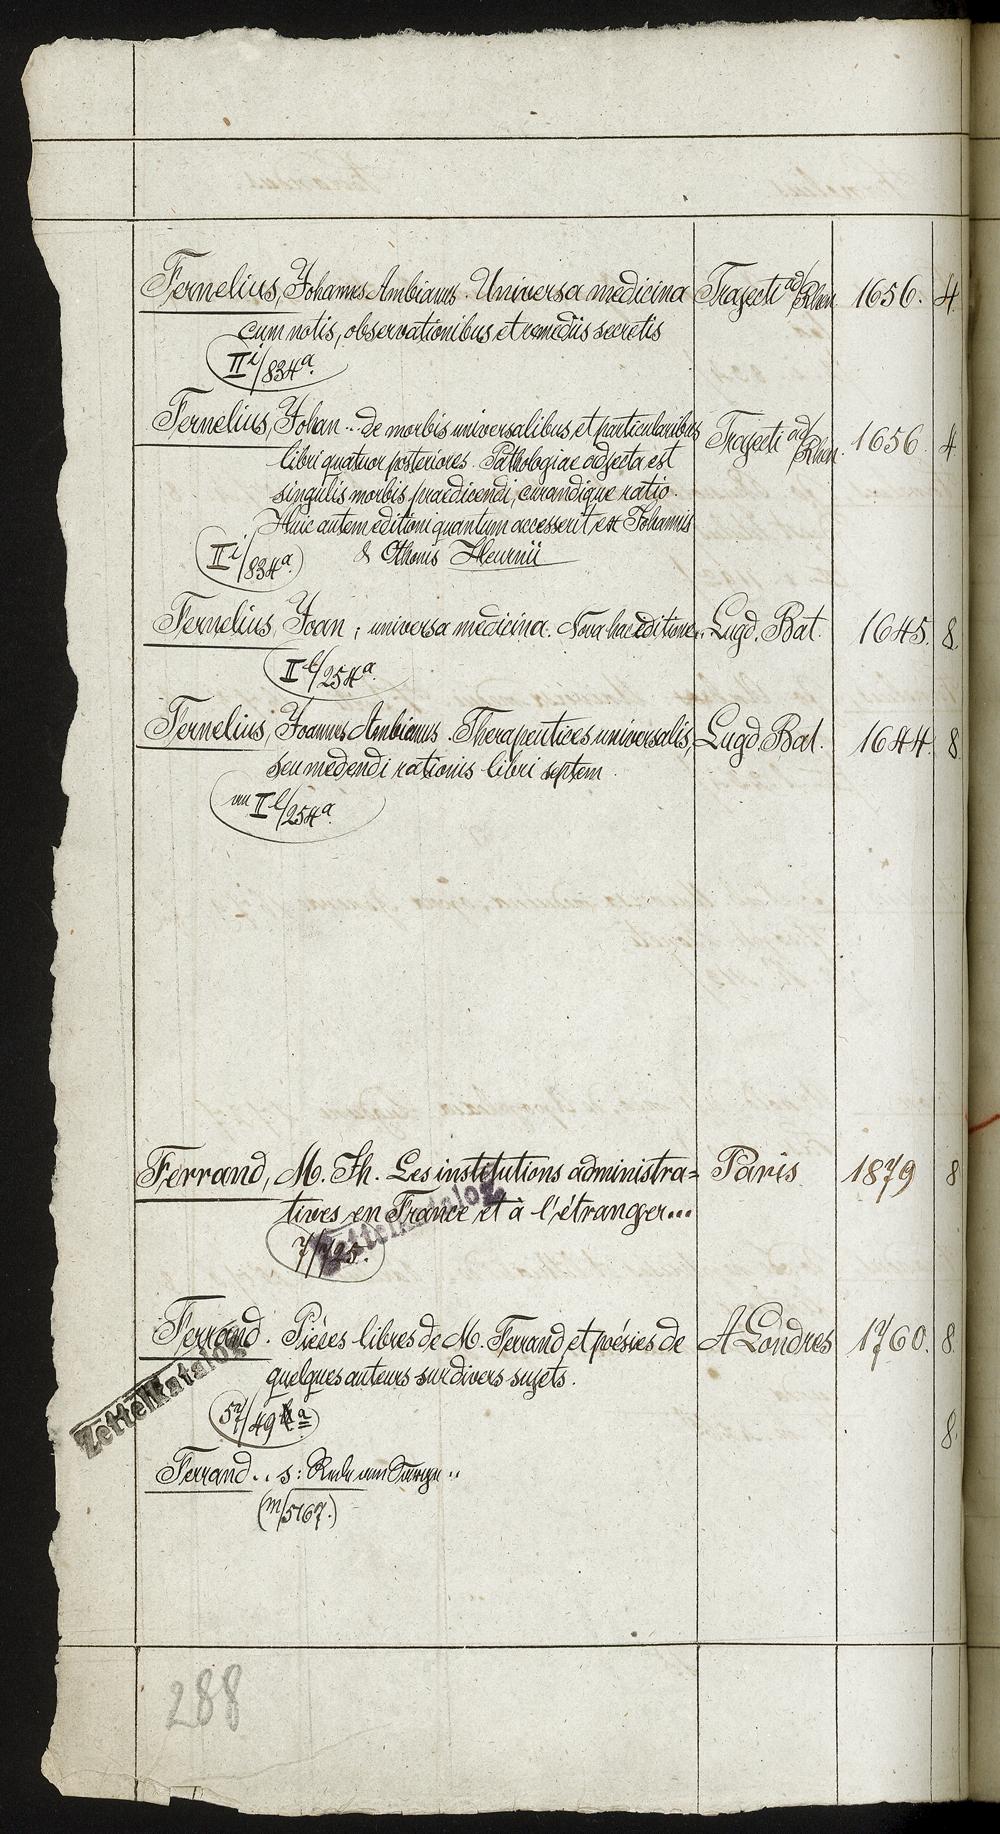 Fernelius, Johannes Ambianus. Universa medicina Trajecti ad/Rhen. 1656. 4.
cum notis, observationibus et remediis secretis
II i/834a.
Fernelius, Johan... de morbis universalibus et particularibus Trajecti ad/Rhen. 1656 4
libri quatuor posteriores. Pathologiae adjecta est
singulis morbis praedicendi, curandique ratio.
Huic autem editioni quantum accesserit, ex Johannis
& Othonis Heurnii
II i/834a.
Fernelius, Joan; universa medicina. Nova hac editione.. Lugd. Bat. 1645. 8.
II l/254a.
Fernelius, Joannes Ambianus. Therapeutices universalis, Lugd. Bat. 1644. 8
seu medendi rationis libri septem.
an II l/254a.
Ferrand, M. Th. Les institutions administra= Paris 1879 8
tives en France et à l'étranger...
7/725.
Zettelkatalog
Ferrand. Pièces libres de M. Ferrand et poésies de A Londres 1760. 8.
quelques auteurs sur divers sujets.
Zettelkatalog
57/49 a
8.
Ferrand.. s:
(m/5167.)
288